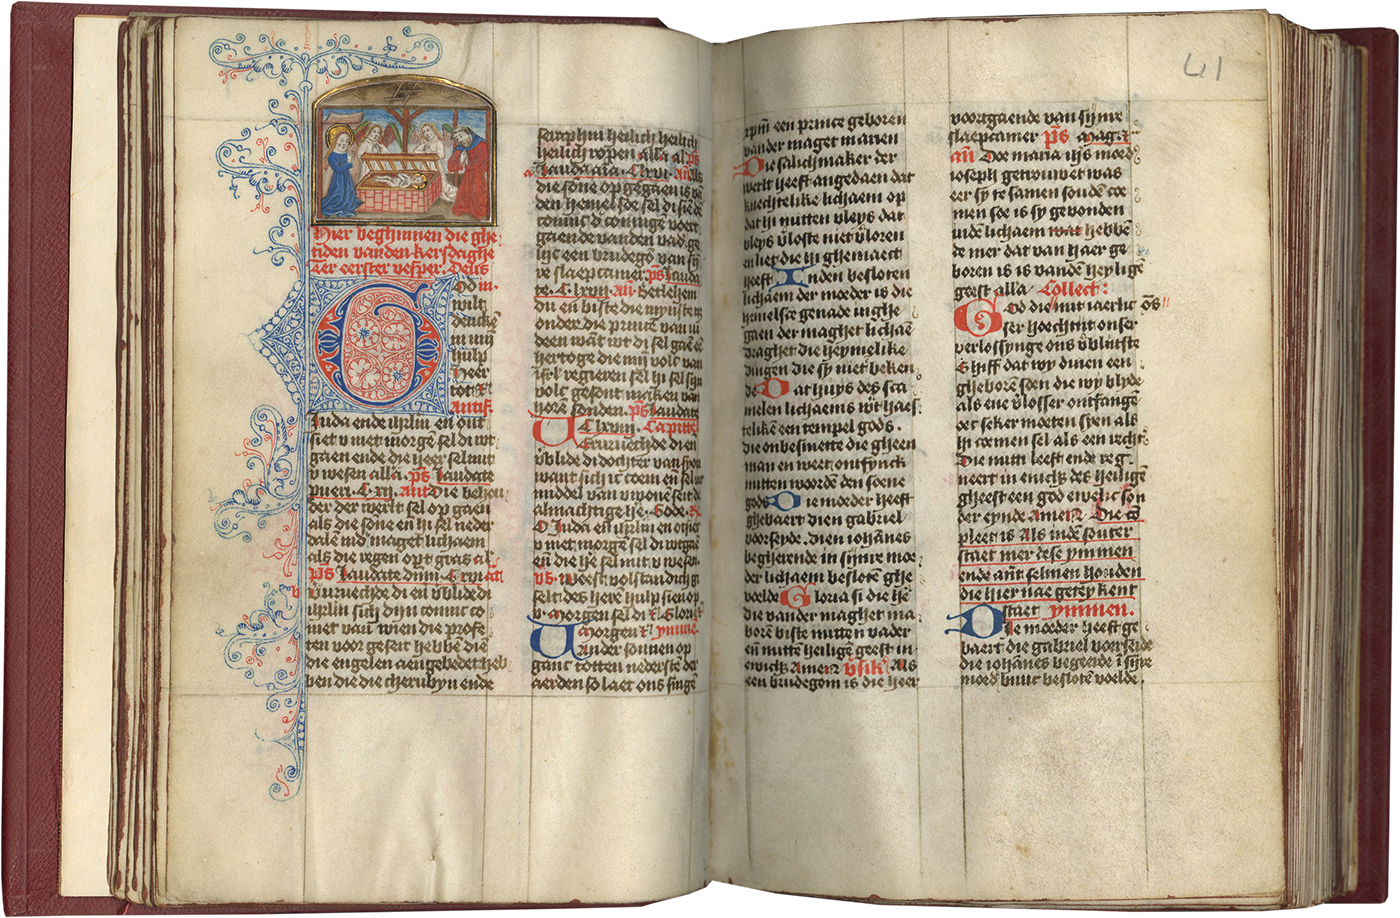 Hier beghinnen die ghe
tiden vanden kersdaghe
Ter eerster vesper. Deus
God in
wilt
dencken
in mij
hulp
Heer
tot &c
Antif.
Juda ende ihrlm en ont
siet v niet morgē sel di wt
gaen ende die heer sel mit
v wesen alla. ps Laudate
pueri. C xij. Ant Die behou
der der werlt sel op gaen
als die sōne en hi sel neder
dalē īnd maget lichaem
als die regen opt gras al.
ps Laudate dnm. C xvi
Vuruechde di en v̄blide di
ihrlm sich dijn conīc co
met van wien die profe
ten voor geseit hebbē diē
die engelen aengebedet heb
ben die die cherubyn ende
seraphin heilich heilich
heilich ropen alla al ps
Lauda aīa. C lxvi. An Als
die sōne op gegaen is vā
den hemel soe sel di siē dē
coninc d coningē voert
gaende vanden vad ge
lijc een brudegō van sij
re slaepcamer ps Lauda
te. C lxvij. An Betlehem
du en biste die mynste n
onder die princē van iu
deen wāt wt di sel gaē eē
hertoge die mij volc van
isrl regieren sel hi sel sijn
volc gesont maken van
horē sonden. ps Laudate
C lxviij. Capittel
Veruruechde di en
v̄blide di dochter van syon
want sich ic coem en sel in
middel van v wonē seit die
almachtige he. Gode. R
O Juda en ihrlm en ontsiet
v niet morgē sel di wtgaē
en die he sel mit v wesen
vs. weest volstandich gi
selt des herē hulp sien op
v. Morgen sel di & Gloria
Morgen & ymme
Vander sonnen op
ganc totten nederstē der
aerden so laet ons singē
xpm een prince geboren
vander maget marien
Die salichmaker der
werlt heeft angedaen dat
knechtelike lichaem op
dat hi mitten vleys dat
vleys v̄loste niet v̄loren
en liet die hi ghemaect
heeft Inden besloten
lichaem der moeder is die
hemelsce genade in ghe
gaen der maghet lichaē
draghet die heymelike
dingen die sy niet beken
de Dat huys des sca
melen lichaems wt haes
telikē een tempel gods.
die onbesmette die gheen
man en weet ontfynck
mitten woordē den soene
gods Die moeder heeft
ghebaert dien gabriel
voorseyde. dien iohānes
begherende in sijnre moe
der lichaem beslotē ghe
voelde Gloria si di he
die vander maghet ma
borē biste mitten vader
en mittē heiligē geest in
ewichz Amen v̄sikel Als
een brudegom is die heer
41
voortgaende van sijnre
slaepcamer ps Magni
an Doe maria ihs moed
ioseph getrouwet was
eer sy te samen soudē coe
men soe is sy gevonden
indē lichaem wat hebbē
de mer dat van haer ge
boren is is vandē heyligē
geest alla Collect:
God die mit iaerlic ōs
ser hoechtijt onser
verlossynge ons v̄blijtste
Ghiff dat wy dinen een
gheborē soen die wy blyde
als ene v̄losser ontfangē
oec seker moeten syen als
hi comen sel als een recht
Die mitti leeft ende reg
neert in ewichz des heiligē
gheest een god ewelic son
der eynde Amen Die cō
pleet is Als indē souter
staet mer dese ymmen
ende ant selmen houden
die hier nae geteykent
staet ymmen.
Die moeder heeft ge
baert die gabriel voerseide
die iohānes begeerde ī sijre
moed buuc beslotē voelde.